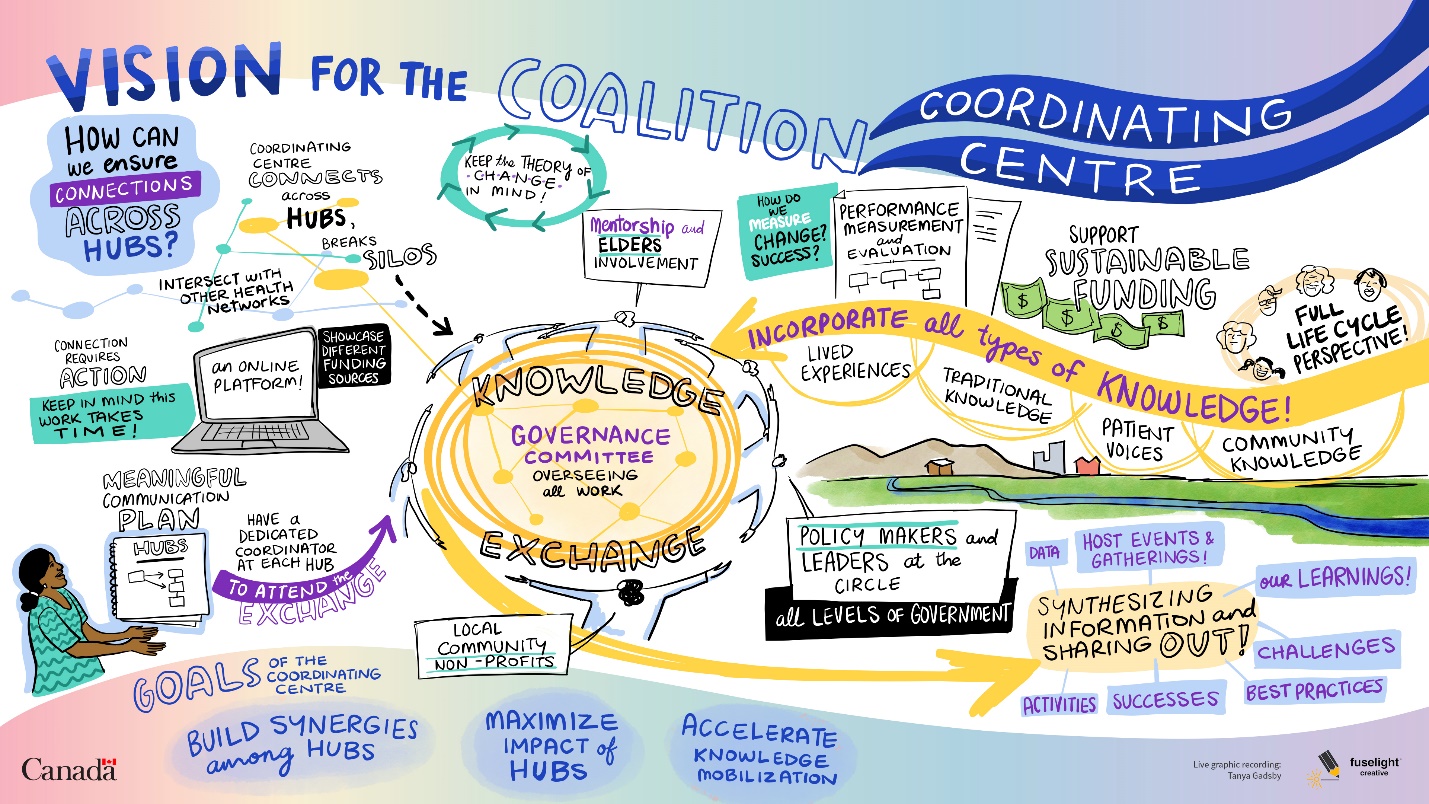 VISION FOR THE COALITION
COORDINATING
CENTRE
HOW CAN
we ensure
CONNECTIONS
ACROSS
HUBS?
COORDINATING
CENTRE
CONNECTS
across
HUBS,
BREAKS
SILOS
INTERSECT WITH
OTHER HEALTH
Networks
KEEP the THEORY of
CHANGE
IN MIND!
Mentorship and
ELDERS
INVOLVEMENT
HOW DO
WE
MEASURE
CHANGE?
SUCCESS?
PERFORMANCE
MEASUREMENT
and
EVALUATION
SUPPORT
SUSTAINABLE
FUNDING
$
$
$
$
FULL
LIFE CYCLE
PERSPECTIVE!
INCORPORATE all types of KNOWLEDGE!
LIVED
EXPERIENCES
TRADITIONAL
KNOWLEDGE
PATIENT
VOICES
COMMUNITY
KNOWLEDGE
CONNECTION
REQUIRES
ACTION
KEEP IN MIND this
WORK TAKES
TIME!
an ONLINE
PLATFORM!
SHOWCASE
DIFFERENT
FUNDING
SOURCES
KNOWLEDGE
GOVERNANCE
COMMITTEE
OVERSEEING
all WORK
EXCHANGE
MEANINGFUL
COMMUNICATION
PLAN
HUBS
HAVE a
DEDICATED
COORDINATOR
AT EACH HUB
TO ATTEND the
EXCHANGE
LOCAL
COMMUNITY
NON-PROFITS
POLICY MAKERS and
LEADERS at the
CIRCLE
all LEVELS OF GOVERNMENT
DATA
HOST EVENTS &
GATHERINGS!
our LEARNINGS!
SYNTHESIZING
INFORMATION and
SHARING OUT!
CHALLENGES
BEST PRACTICES
SUCCESSES
ACTIVITIES
GOALS OF THE
COORDINATING
CENTRE
BUILD SYNERGIES
among HUBS
MAXIMIZE
IMPACT of
HUBS
ACCELERATE
KNOWLEDGE
MOBILIZATION
Canada
Live graphic recording:
Tanya Gadsby
fuselight
creative